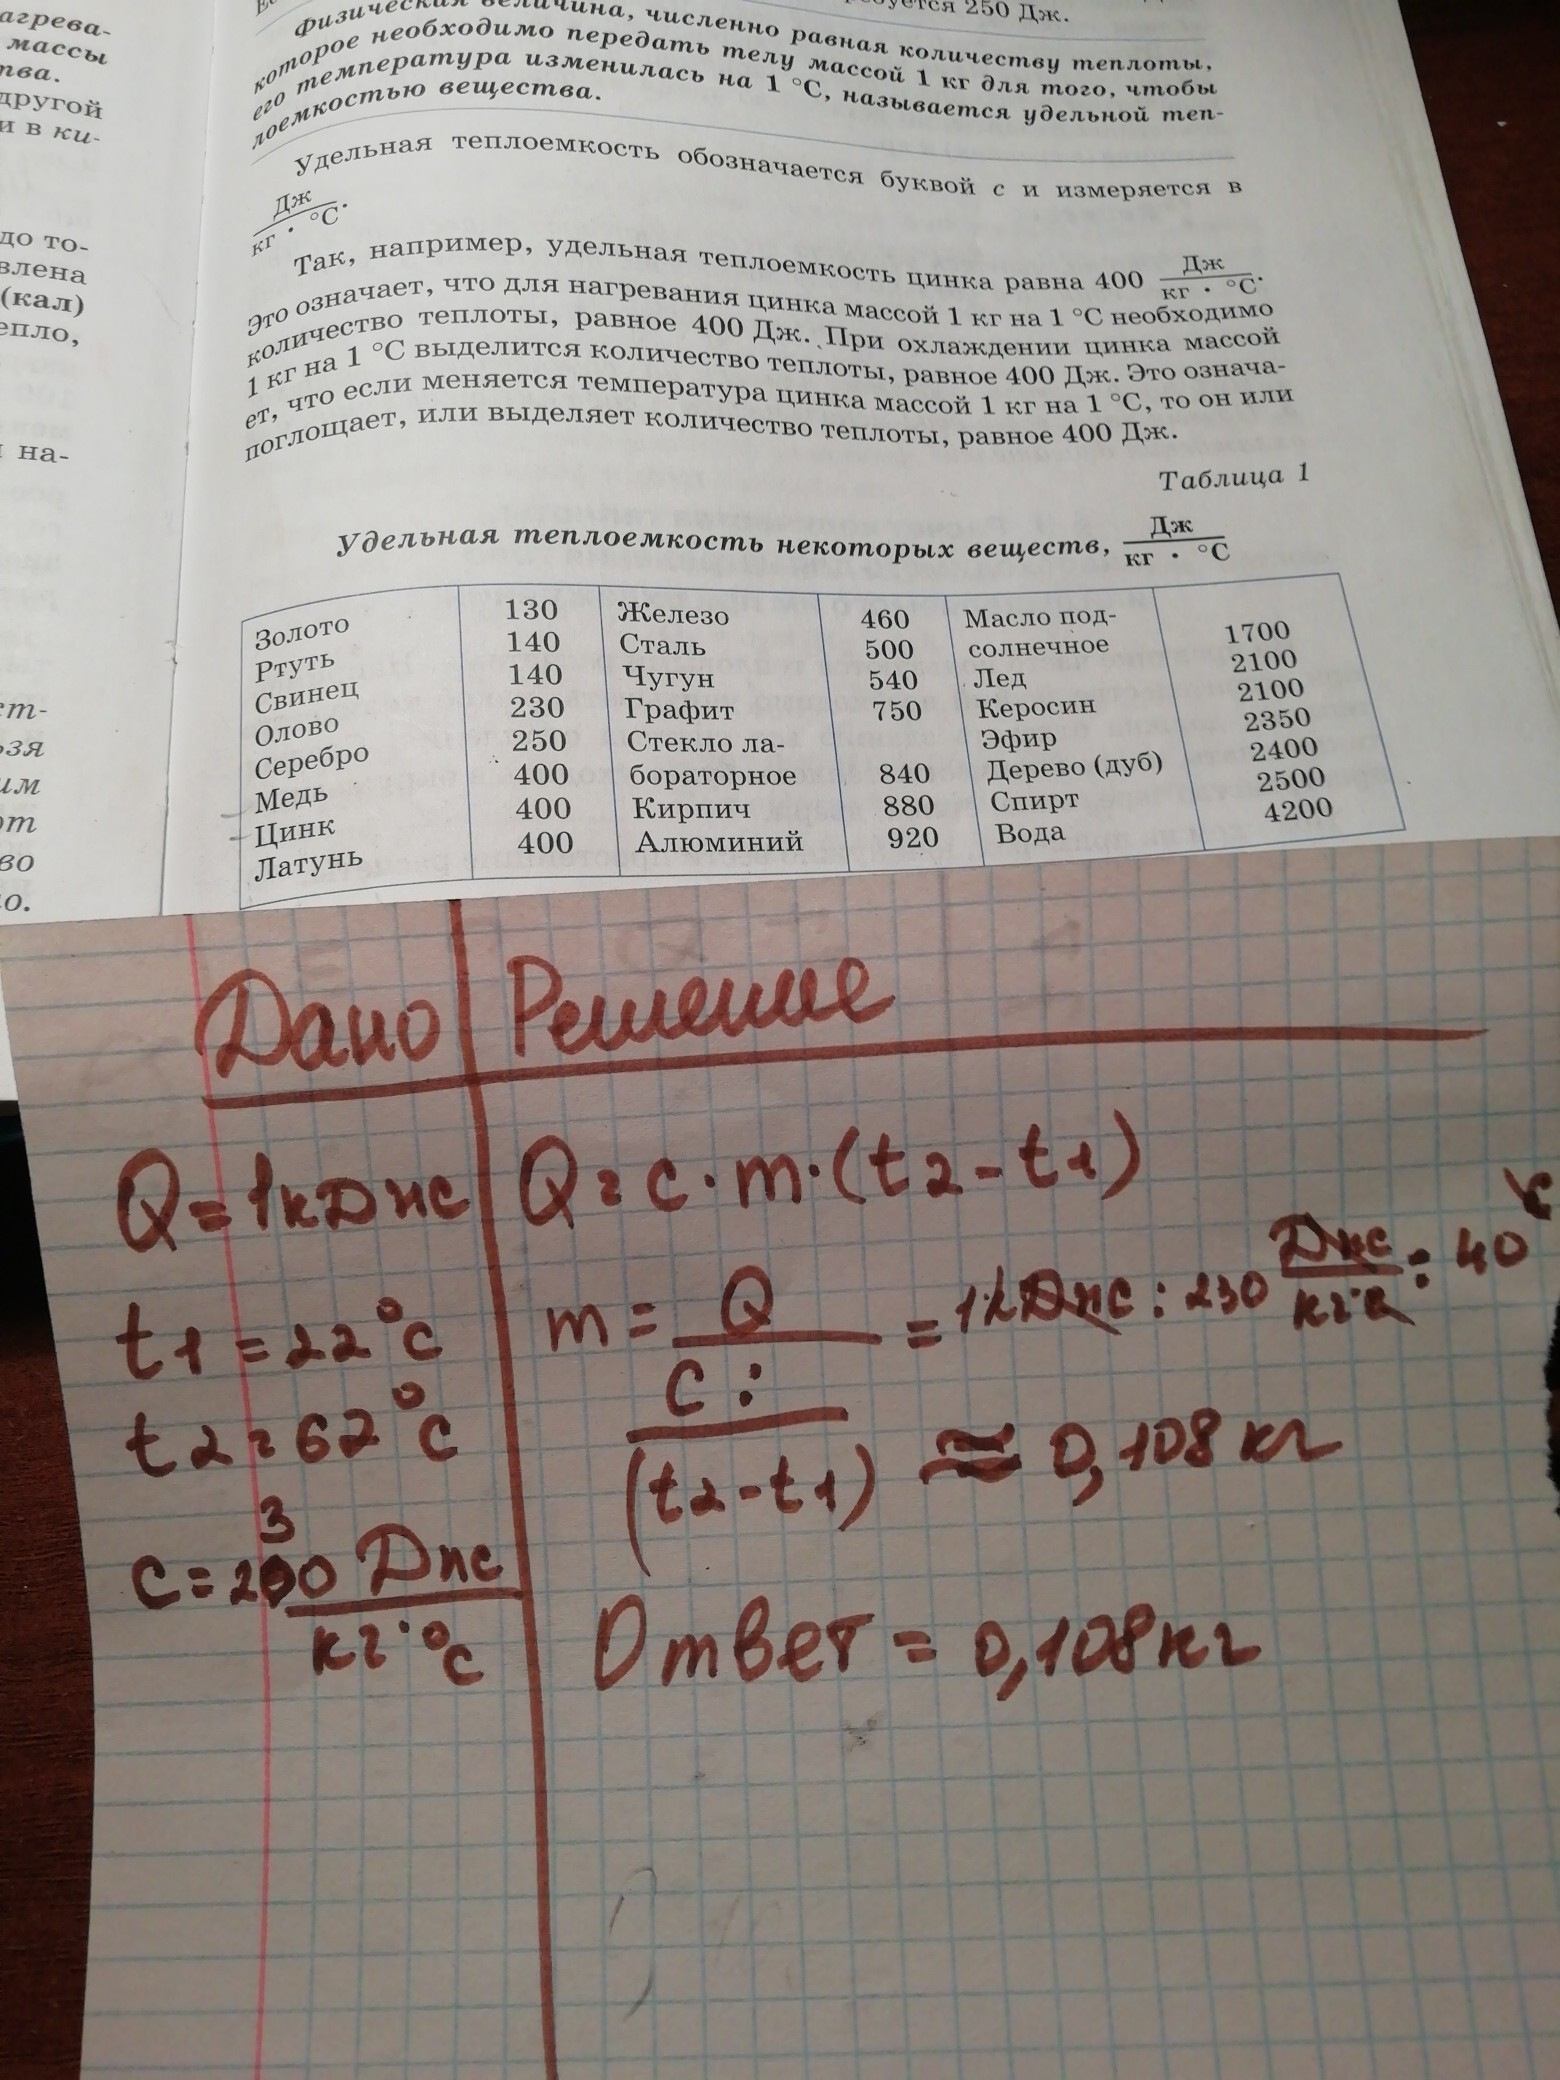 агрева-
массы
тва.
другой
и в ки-
до то-
влена
(кал)
епло,
на-
ст-
ьзя
им
от
во
о.
ебуется 250 Дж.
Физическая величина, численно равная количеству теплоты,
которое необходимо передать телу массой 1 кг для того, чтобы
его температура изменилась на 1 °С, называется удельной теп-
лоемкостью вещества.
Удельная теплоемкость обозначается буквой с и измеряется в
Дж
кг · °С.
Так, например, удельная теплоемкость цинка равна 400 Дж/кг · °С.
Это означает, что для нагревания цинка массой 1 кг на 1 °С необходимо
количество теплоты, равное 400 Дж. При охлаждении цинка массой
1 кг на 1 °С выделится количество теплоты, равное 400 Дж. Это означа-
ет, что если меняется температура цинка массой 1 кг на 1 °С, то он или
поглощает, или выделяет количество теплоты, равное 400 Дж.
Таблица 1
Удельная теплоемкость некоторых веществ, Дж/кг · °С
Золото 130
Ртуть 140
Свинец 140
Олово 230
Серебро 250
Медь 400
Цинк 400
Латунь 400
Железо 460
Сталь 500
Чугун 540
Графит 750
Стекло ла-
бораторное 840
Кирпич 880
Алюминий 920
Масло под-
солнечное 1700
Лед 2100
Керосин 2100
Эфир 2350
Дерево (дуб) 2400
Спирт 2500
Вода 4200
Дано
Q = 1кДж
t1 = 22°C
t2 = 62°C
C = 230 Дж
кг·°C
Решение
Q = c · m · (t2 - t1)
m = Q
C :
(t2 - t1)
= 1кДж : 230 Дж/кг·с : 40 с
≈ 0,108 кг
Ответ = 0,108кг